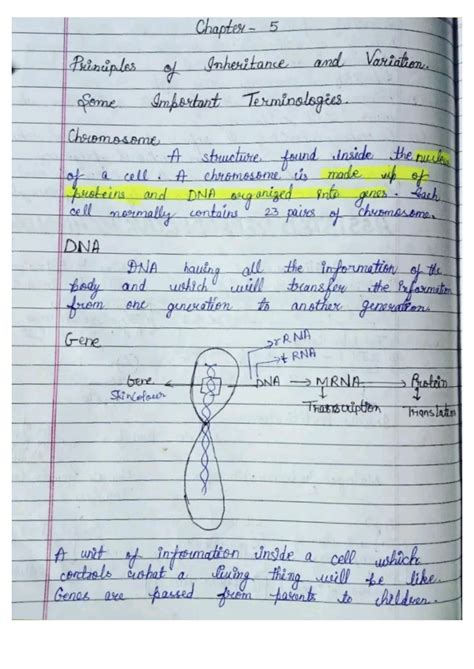 Chapter - 5
Principles of Inheritance and Variation.
Some Important Terminologies.
Chromosome
A structure found inside the nucleus
of a cell. A chromosome is made up of
proteins and DNA organized into genes. Each
cell normally contains 23 pairs of chromosome.
DNA
DNA having all the information of the
body and which will transfer the information
from one generation to another generation.
Gene
rRNA
tRNA
Gene ← DNA → MRNA → Protein
Skin colour Transcription Translation
A unit of information inside a cell which
controls what a living thing will be like.
Genes are passed from parents to children.